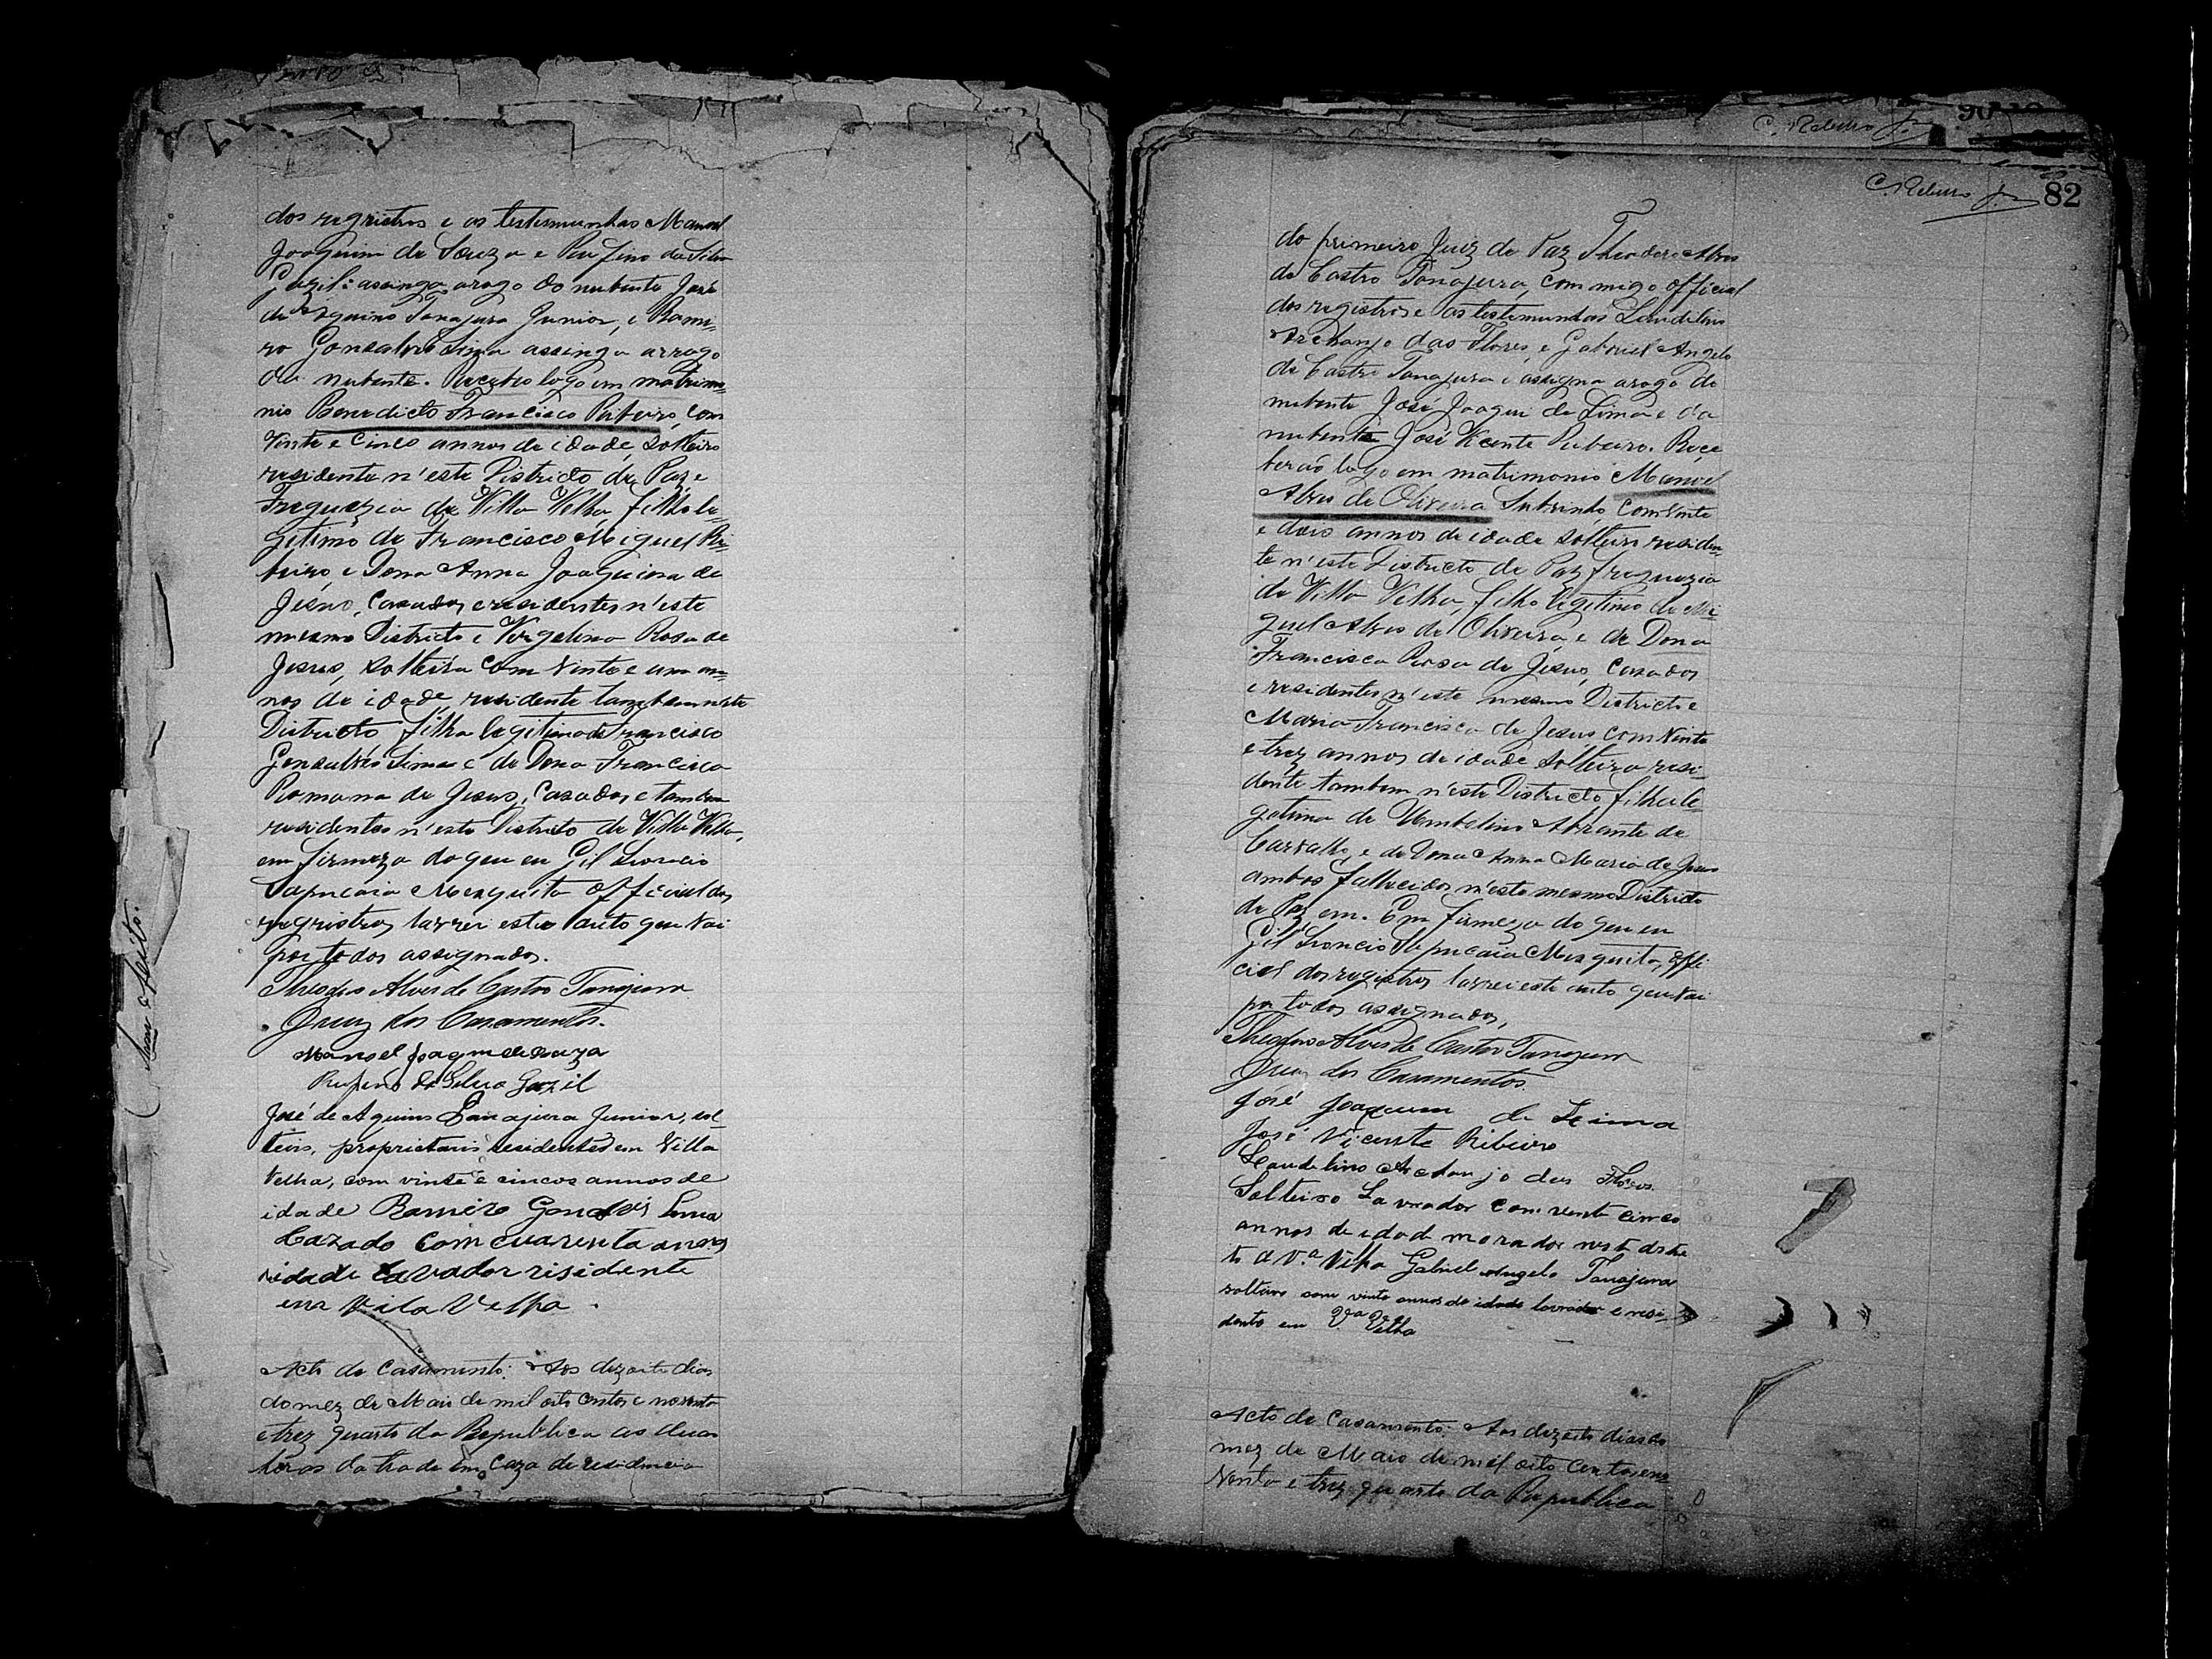 dos registros e as testemunhas Manoel
Joaquim de Souza e Rufino da Silva
Gazil: assinga arogo do nubente José
de Aquino Tanajura Junior, e Rami-
ro Gonsalves Lima assinga arrogo
da nubente. Recebeo logo em matrimo-
nio Benedicto Francisco Ribeiro, com
Vinte e Cinco annos de idade, solteiro
residente n'este Districto de Paz e
Freguezia de Villa Velha, filho le-
gitimo de Francisco Miguel Ri-
beiro, e Dona Anna Joaquina de
Jesus, Casados e residentes n'este
mesmo Districto e Vergelina Rosa de
Jesus, solteira com vinte e um an-
nos de idade, residente tambem neste
Districto filha legitima de Francisco
Gonsalves Lima e de Dona Francisca
Romana de Jesus, Casados e tambem
residentes n'este Districto de Villa Velha,
em firmeza do que eu Gil Leoncio
Sapucaia Mesquita official dos
registros lavrei este auto que vai
por todos assignados.
Theodro Alves de Castro Tanajura
Juiz dos Casamentos.
Manoel Joaqim de Souza
Rufino da Silva Gazil
José de Aquino Tanajura Junior, sol-
teiro, proprietario residente em Villa
Velha, com vinte e cincos annos de
idade Ramiro Gonçalves Lima
Cazado com cuarenta annos
didade lavador risidente
em Vila Velha.
Acto de Casamento. Aos dezoito dias
do mez de Maio de mil oito centos e noventa
e trez quarto da Republica as duas
horas da tarde em Caza de residencia
Sem efeito.
C. Rebello Jr
C. Rebello Jr 82
do primeiro Juiz de Paz Theodoro Alves
de Castro Tanajura, commigo official
dos registros e as testemunhas Laudilino
Archanjo das Flores, e Gabriel Angelo
de Castro Tanajura e assigna arogo do
nubente José Joaqui de Lima e da
nubente José Vicente Ribeiro. Rece
berão logo em matrimonio Manoel
Alves de Oliveira Subrinho, com vinte
e dois annos de idade solteiro residen-
te n'este Districto de Paz freguezia
de Villa Velha, filho legitimo de Mi
guel Alves de Oliveira, e de Dona
Francisca Rosa de Jesus, Casados
e residentes n'este mesmo Districto e
Maria Francisca de Jesus com vinte
e trez annos de idade solteira resi-
dente tambem n'este Districto, filha le-
getima de Umbelino Abrante de
Carvalho, e de Dona Anna Maria de Jesus
ambos fallecidos n'este mesmo Districto
de Paz em. Em firmeza do que eu
Gil Leoncio Sapucaia Mesquita, offi
cial dos registros lavrei este auto que vai
por todos assignados,
Theodro Alves de Castro Tanajura
Juiz dos Casamentos.
José Joaquim de Leima
José Vicente Ribeiro
Laudelino Archanjo das Flores.
Solteiro Lavrador com vente cinco
annos de idad morador nest distri
to de Vª Velha Gabriel Angelo Tanajura
solteiro com vinte annos de idade lavrador e resi-
dente em Vª Velha
Acto de Casamento: Aos dezoito dias do
mez de Maio de mil oito centos e no-
venta e trez quarto da Republica